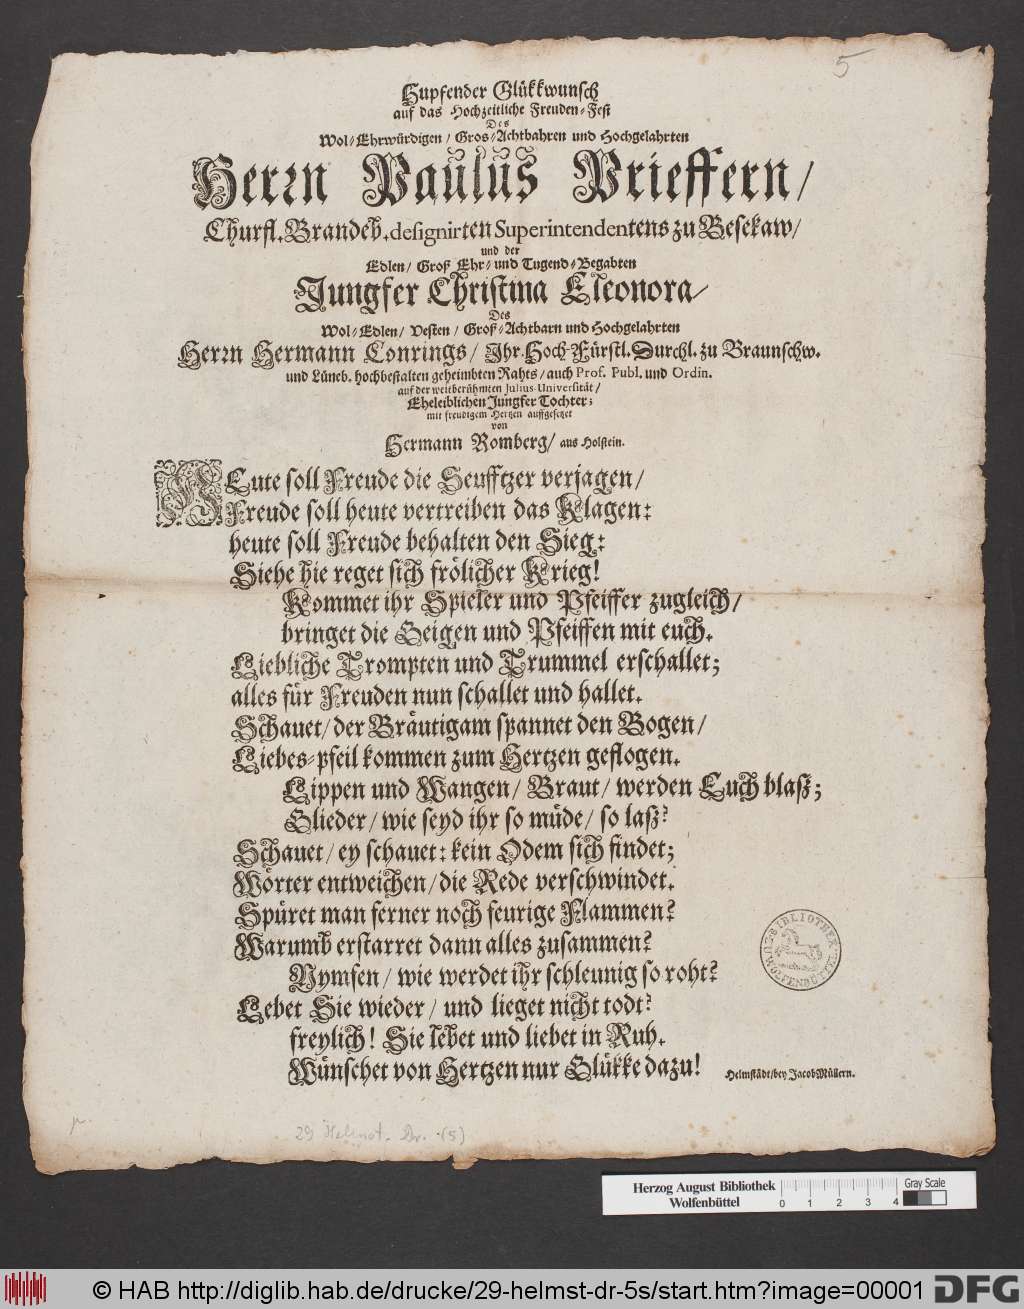 5
Hupfender Glükkwunsch
auf das Hochzeitliche Freuden-Fest
Des
Wol-Ehrwürdigen / Gros-Achtbahren und Hochgelahrten
Herꝛn Paulus Prieffern /
Churfl. Brandeb. designirten Superintendentens zu Besekaw /
und der
Edlen / Groß Ehr- und Tugend-Begabten
Jungfer Christina Eleonora /
Des
Wol-Edlen / Vesten / Groß-Achtbarn und Hochgelahrten
Herꝛn Hermann Conrings / Ihr. Hoch-Fürstl. Durchl. zu Braunschw.
und Lüneb. hochbestalten geheimbten Rahts / auch Prof. Publ. und Ordin.
auf der weitberühmten Julius-Universität /
Eheleiblichen Jungfer Tochter;
mit freudigem Hertzen auffgesetzet
von
Hermann Romberg / aus Holstein.
HEute soll Freude die Seufftzer verjagen /
Freude soll heute vertreiben das Klagen:
heute soll Freude behalten den Sieg:
Siehe hie reget sich frölicher Krieg!
Kommet ihr Spieler und Pfeiffer zugleich /
bringet die Geigen und Pfeiffen mit euch.
Liebliche Trompten und Trummel erschallet;
alles für Freuden nun schallet und hallet.
Schauet / der Bräutigam spannet den Bogen /
Liebes-pfeil kommen zum Hertzen geflogen.
Lippen und Wangen / Braut / werden Euch blaß;
Glieder / wie seyd ihr so müde / so laß?
Schauet / ey schauet: kein Odem sich findet;
Wörter entweichen / die Rede verschwindet.
Spüret man ferner noch feurige Flammen?
Warumb erstarret dann alles zusammen?
Nymfen / wie werdet ihr schleunig so roht?
Lebet Sie wieder / und lieget nicht todt?
freylich! Sie lebet und liebet in Ruh.
Wünschet von Hertzen nur Glükke dazu!
Helmstädt / bey Jacob Müllern.
BIBLIOTHEK
WOLFENBÜTTEL
29 Helmst. Dr. (5)
Herzog August Bibliothek
Wolfenbüttel
0 1 2 3 4
Gray Scale
© HAB http://diglib.hab.de/drucke/29-helmst-dr-5s/start.htm?image=00001
DFG